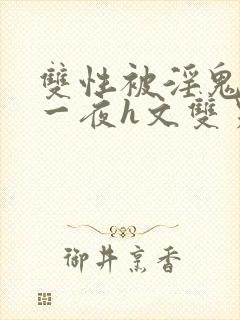 雙性被淫鬼
一夜h文雙
御井烹香